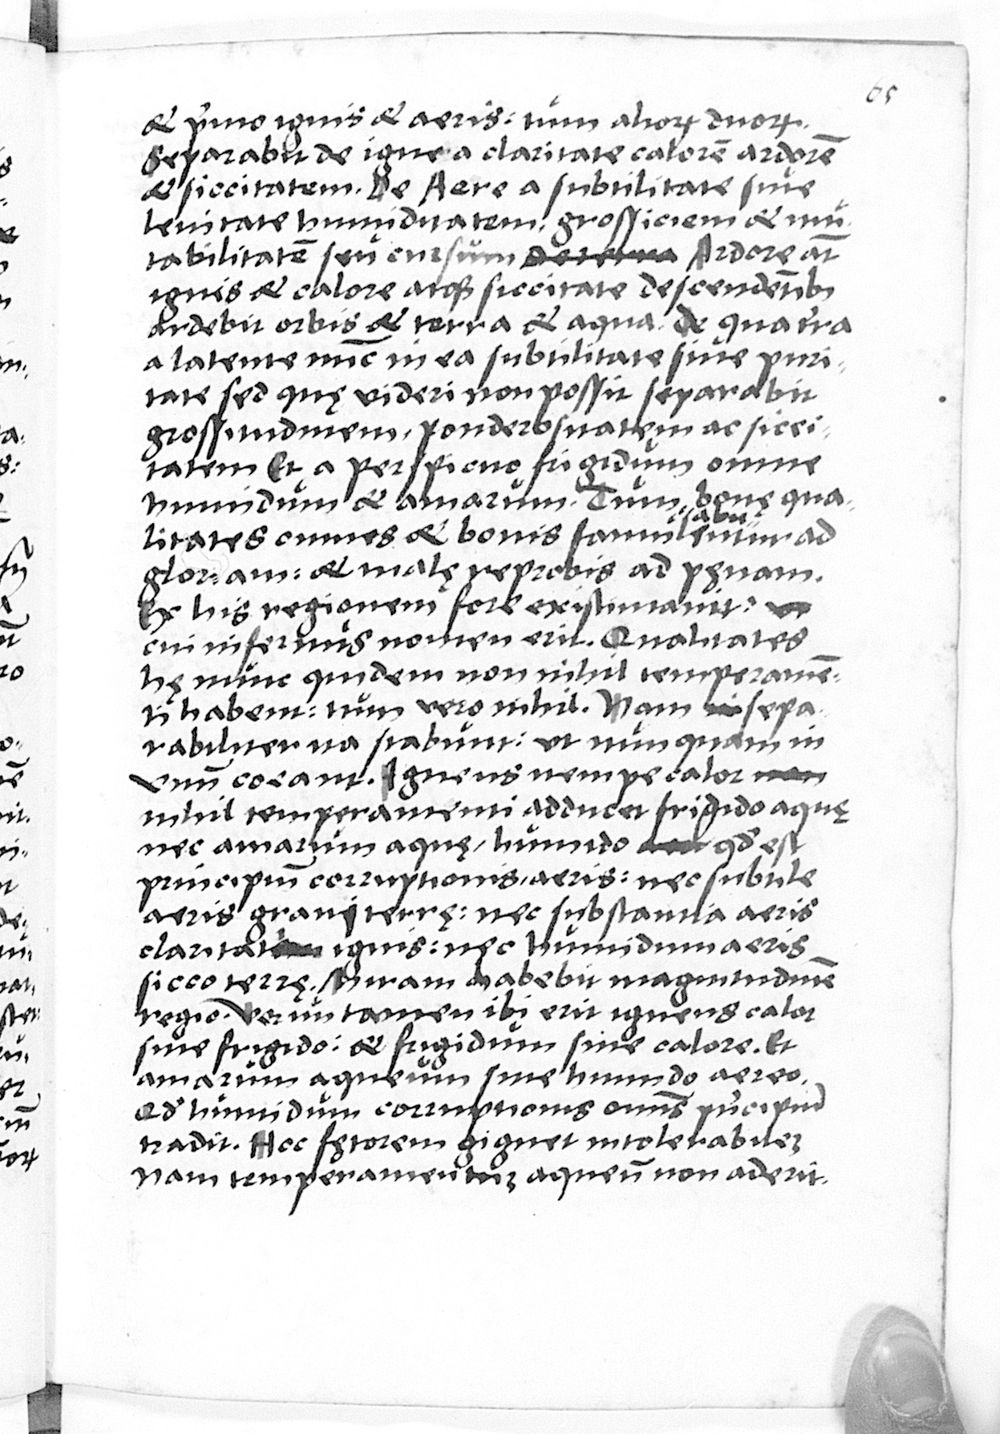 65
& p̃mo ignis & aeris: tum alioꝝ duoꝝ.
Separabit de igne a claritate calorē ardorē
& siccitatem. De Aere a subtilitate siue
leuitate humiditatem, grossiciem & mu-
tabilitatē seu cursum de terra Ardore aūt
ignis & calore atqꝫ siccitate descendētibꝫ
ardebit orbis & terra & aqua. De qua t̃ra
a latente nūc in ea subtilitate siue puri-
tate sed quę videri non possit separabit
grossitudinem, ponderositatem ac sicci-
tatem Et a perspicuo frigidum omne
humidum & amarum. Tum bonę qua-
litates omnes & bonis famulabuntur ad
gloriam: & malę reprobis ad pęnam.
Ex his regionem fore existimauit:
cui infernus nomen erit. Qualitates
hę nunc quidem non nihil temperamē-
ti habent: tum vero nihil. Nam in sepa-
rabiliter ita stabunt: ut nunquam in
vnū coeant. Igneus nempe calor non
nihil temperamenti adducet frigido aquę
nec amarum aquę, humido aeri qd̃ est
principiū corruptionis, aeris: nec subtile
aeris graui terrę: nec substantia aeris
claritatem ignis: nec humidum aeris
sicco terrę. Miram habebit magnitudinē
regio. Verum tamen ibi erit igneus calor
sine frigido: & frigidum sine calore. Et
amarum aqueum sine humido aereo.
Qd̃ humidum corruptionis omīs p̃ncipiū
tradit. Hoc fętorem gignet intolerabileꝫ
Nam temperamentuꝫ aqueū non aderit.